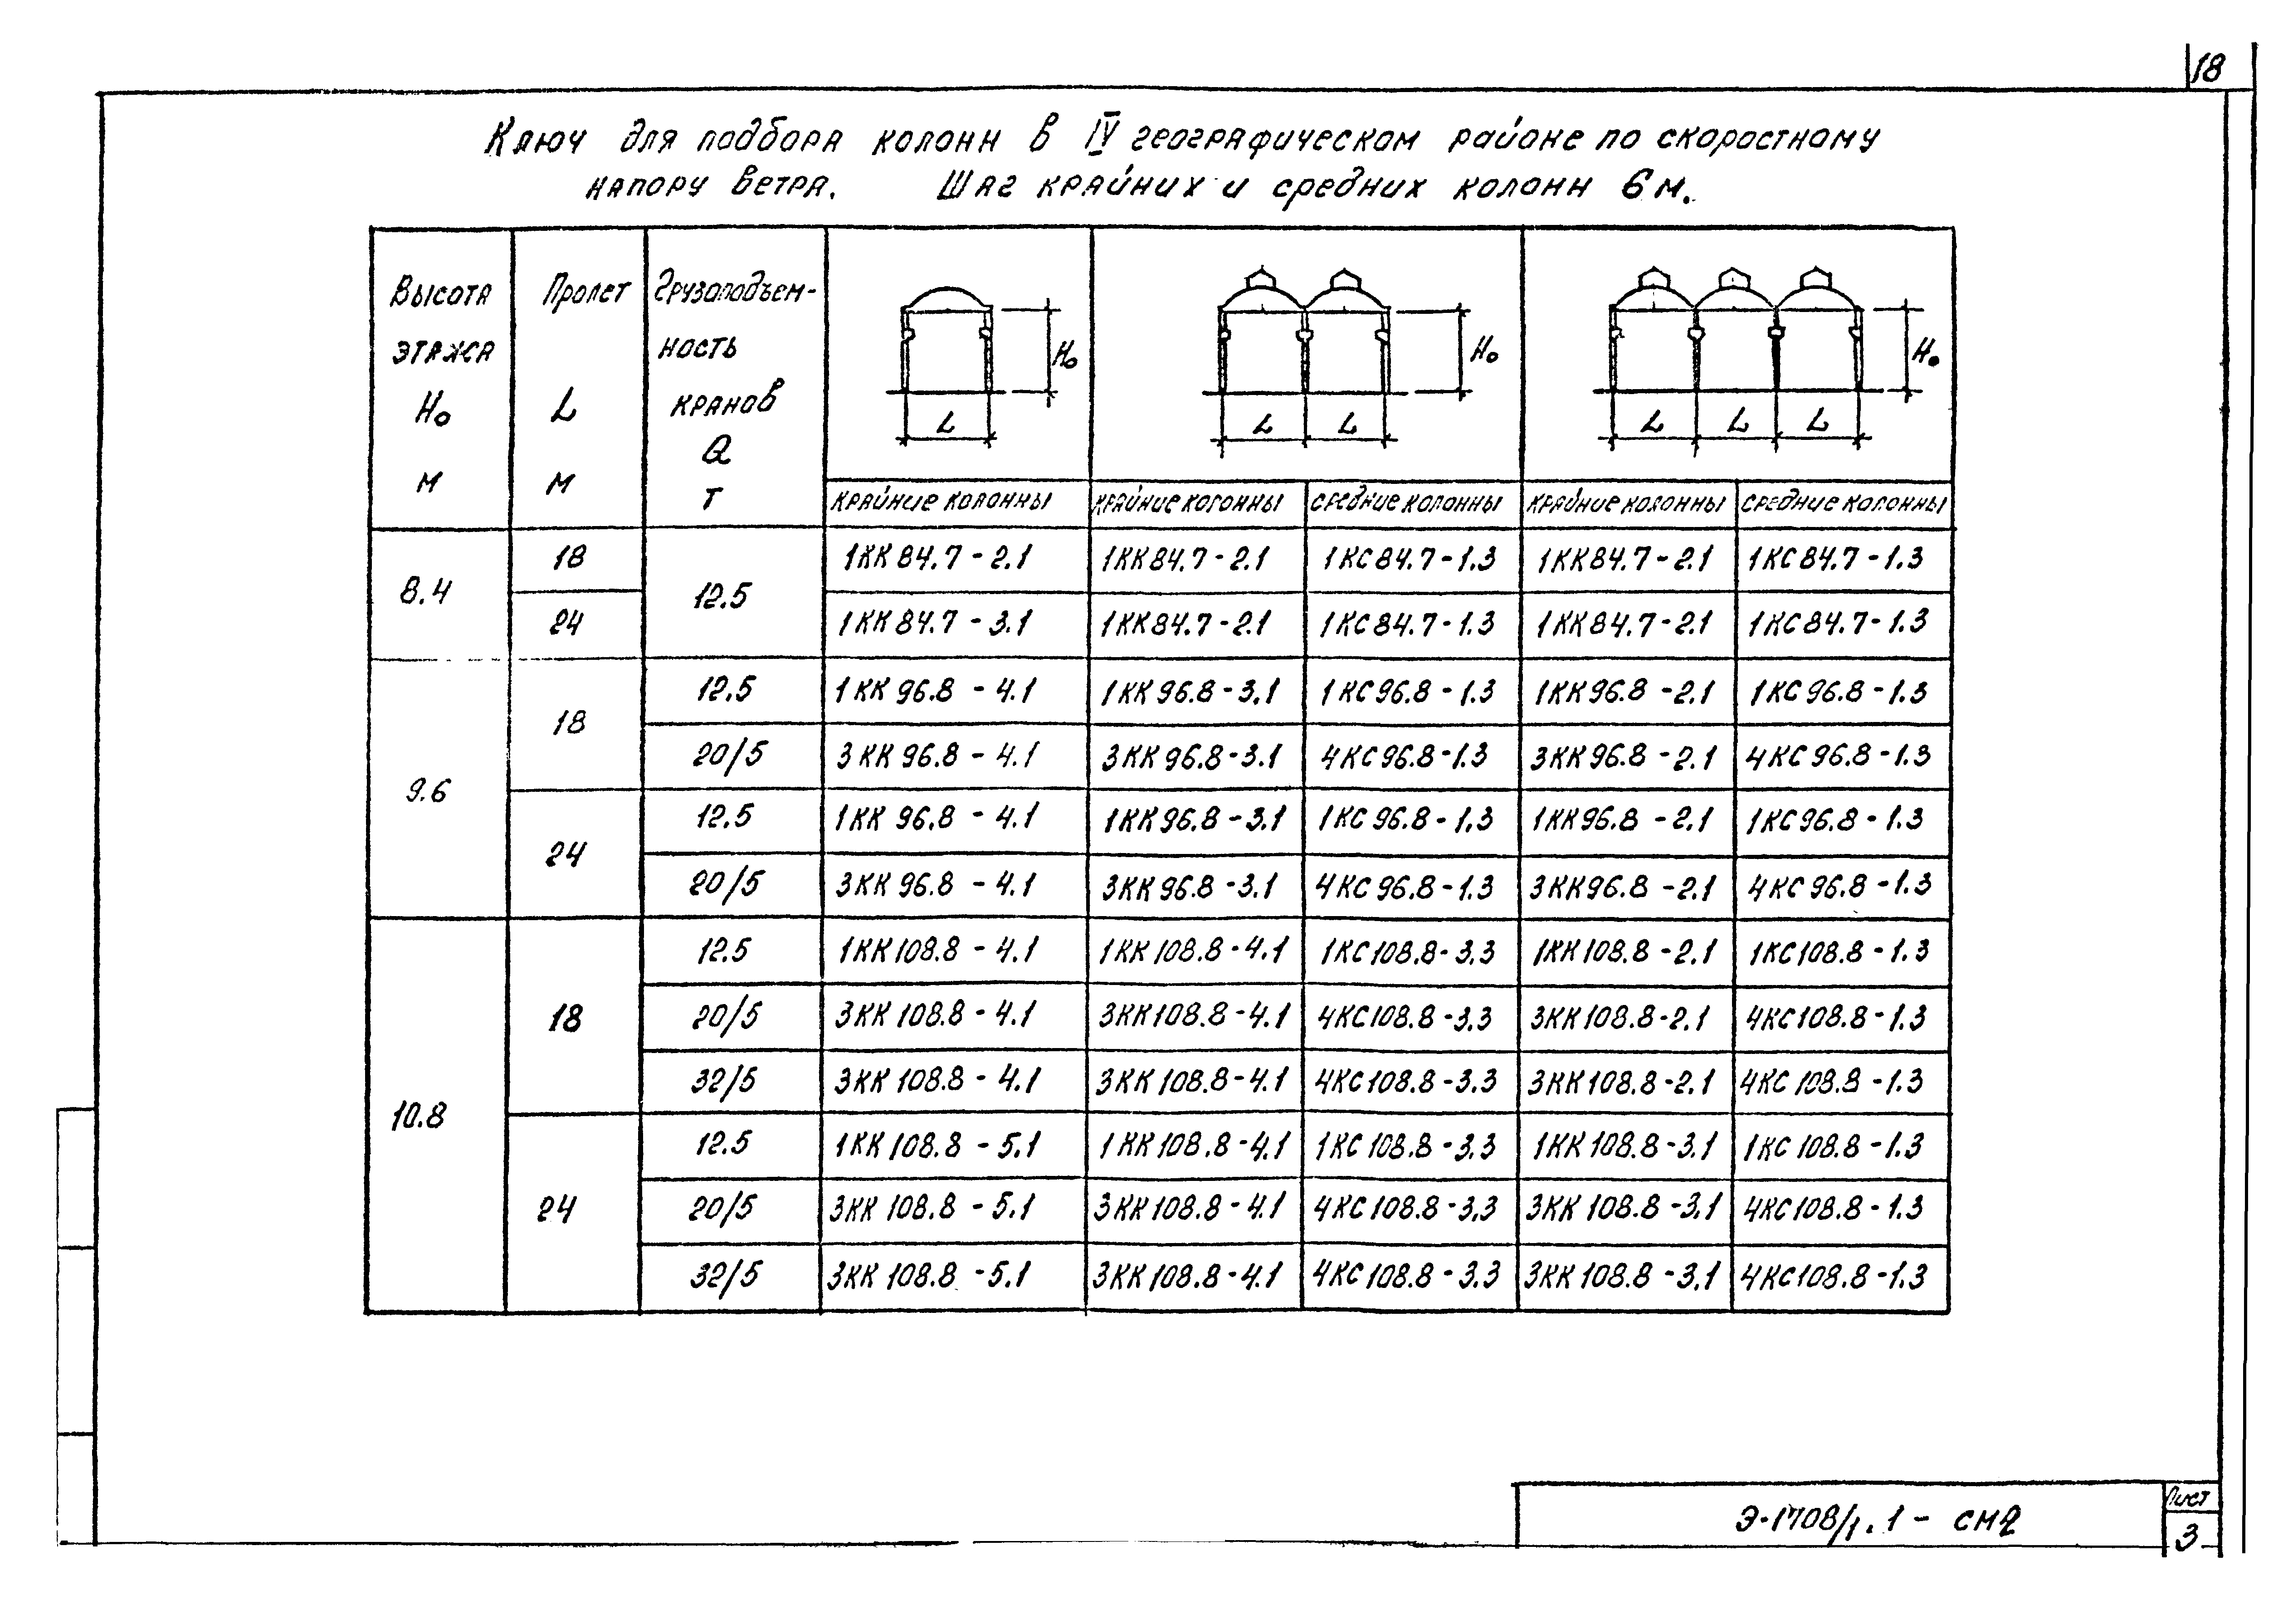 18
Ключ для подбора колонн в IV географическом районе по скоростному
напору ветра. Шаг крайних и средних колонн 6 м.
Высота этажа Н₀ м | Пролет L м | Грузоподъем-ность кранов Q т
Н₀ Н₀ Н₀
L L L L L L
крайние колонны крайние колонны средние колонны крайние колонны средние колонны
8.4 18 12.5 1КК84.7-2.1 1КК84.7-2.1 1КС84.7-1.3 1КК84.7-2.1 1КС84.7-1.3
24 1КК84.7-3.1 1КК84.7-2.1 1КС84.7-1.3 1КК84.7-2.1 1КС84.7-1.3
9.6 18 12.5 1КК96.8-4.1 1КК96.8-3.1 1КС96.8-1.3 1КК96.8-2.1 1КС96.8-1.3
20/5 3КК96.8-4.1 3КК96.8-3.1 4КС96.8-1.3 3КК96.8-2.1 4КС96.8-1.3
24 12.5 1КК96.8-4.1 1КК96.8-3.1 1КС96.8-1.3 1КК96.8-2.1 1КС96.8-1.3
20/5 3КК96.8-4.1 3КК96.8-3.1 4КС96.8-1.3 3КК96.8-2.1 4КС96.8-1.3
10.8 18 12.5 1КК108.8-4.1 1КК108.8-4.1 1КС108.8-3.3 1КК108.8-2.1 1КС108.8-1.3
20/5 3КК108.8-4.1 3КК108.8-4.1 4КС108.8-3.3 3КК108.8-2.1 4КС108.8-1.3
32/5 3КК108.8-4.1 3КК108.8-4.1 4КС108.8-3.3 3КК108.8-2.1 4КС108.8-1.3
24 12.5 1КК108.8-5.1 1КК108.8-4.1 1КС108.8-3.3 1КК108.8-3.1 1КС108.8-1.3
20/5 3КК108.8-5.1 3КК108.8-4.1 4КС108.8-3.3 3КК108.8-3.1 4КС108.8-1.3
32/5 3КК108.8-5.1 3КК108.8-4.1 4КС108.8-3.3 3КК108.8-3.1 4КС108.8-1.3
Э-1708/1.1 - СМ2
Лист
3